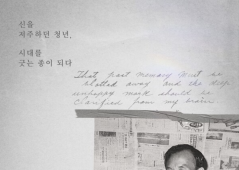 신을
저주하던 청년,
시대를
긋는 종이 되다
That past memory must be
blotted away and the deep
unhappy mark should be
clarified from my brain